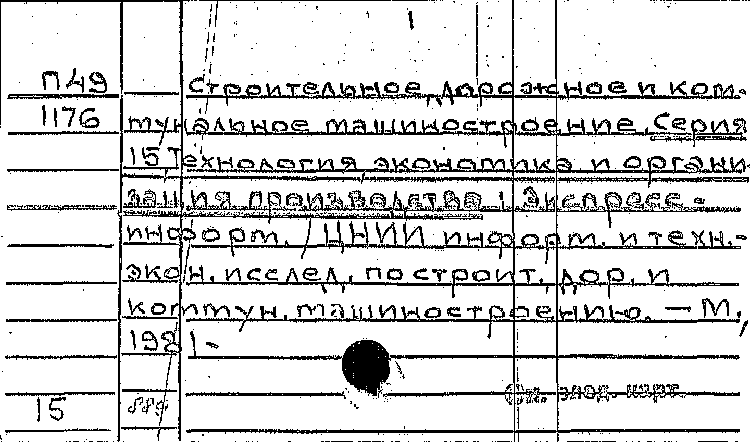 П49 Строительное, дорожное и ком-
1176 мунальное машиностроение. Серия
15 Технология, экономика и органи-
зация производства : Экспресс-
информ. / ЦНИИ информ. и техн.-
экон. исслед. по строит., дор. и
коммун. машиностроению. — М.,
1981-
См. элод. карт.
15 889